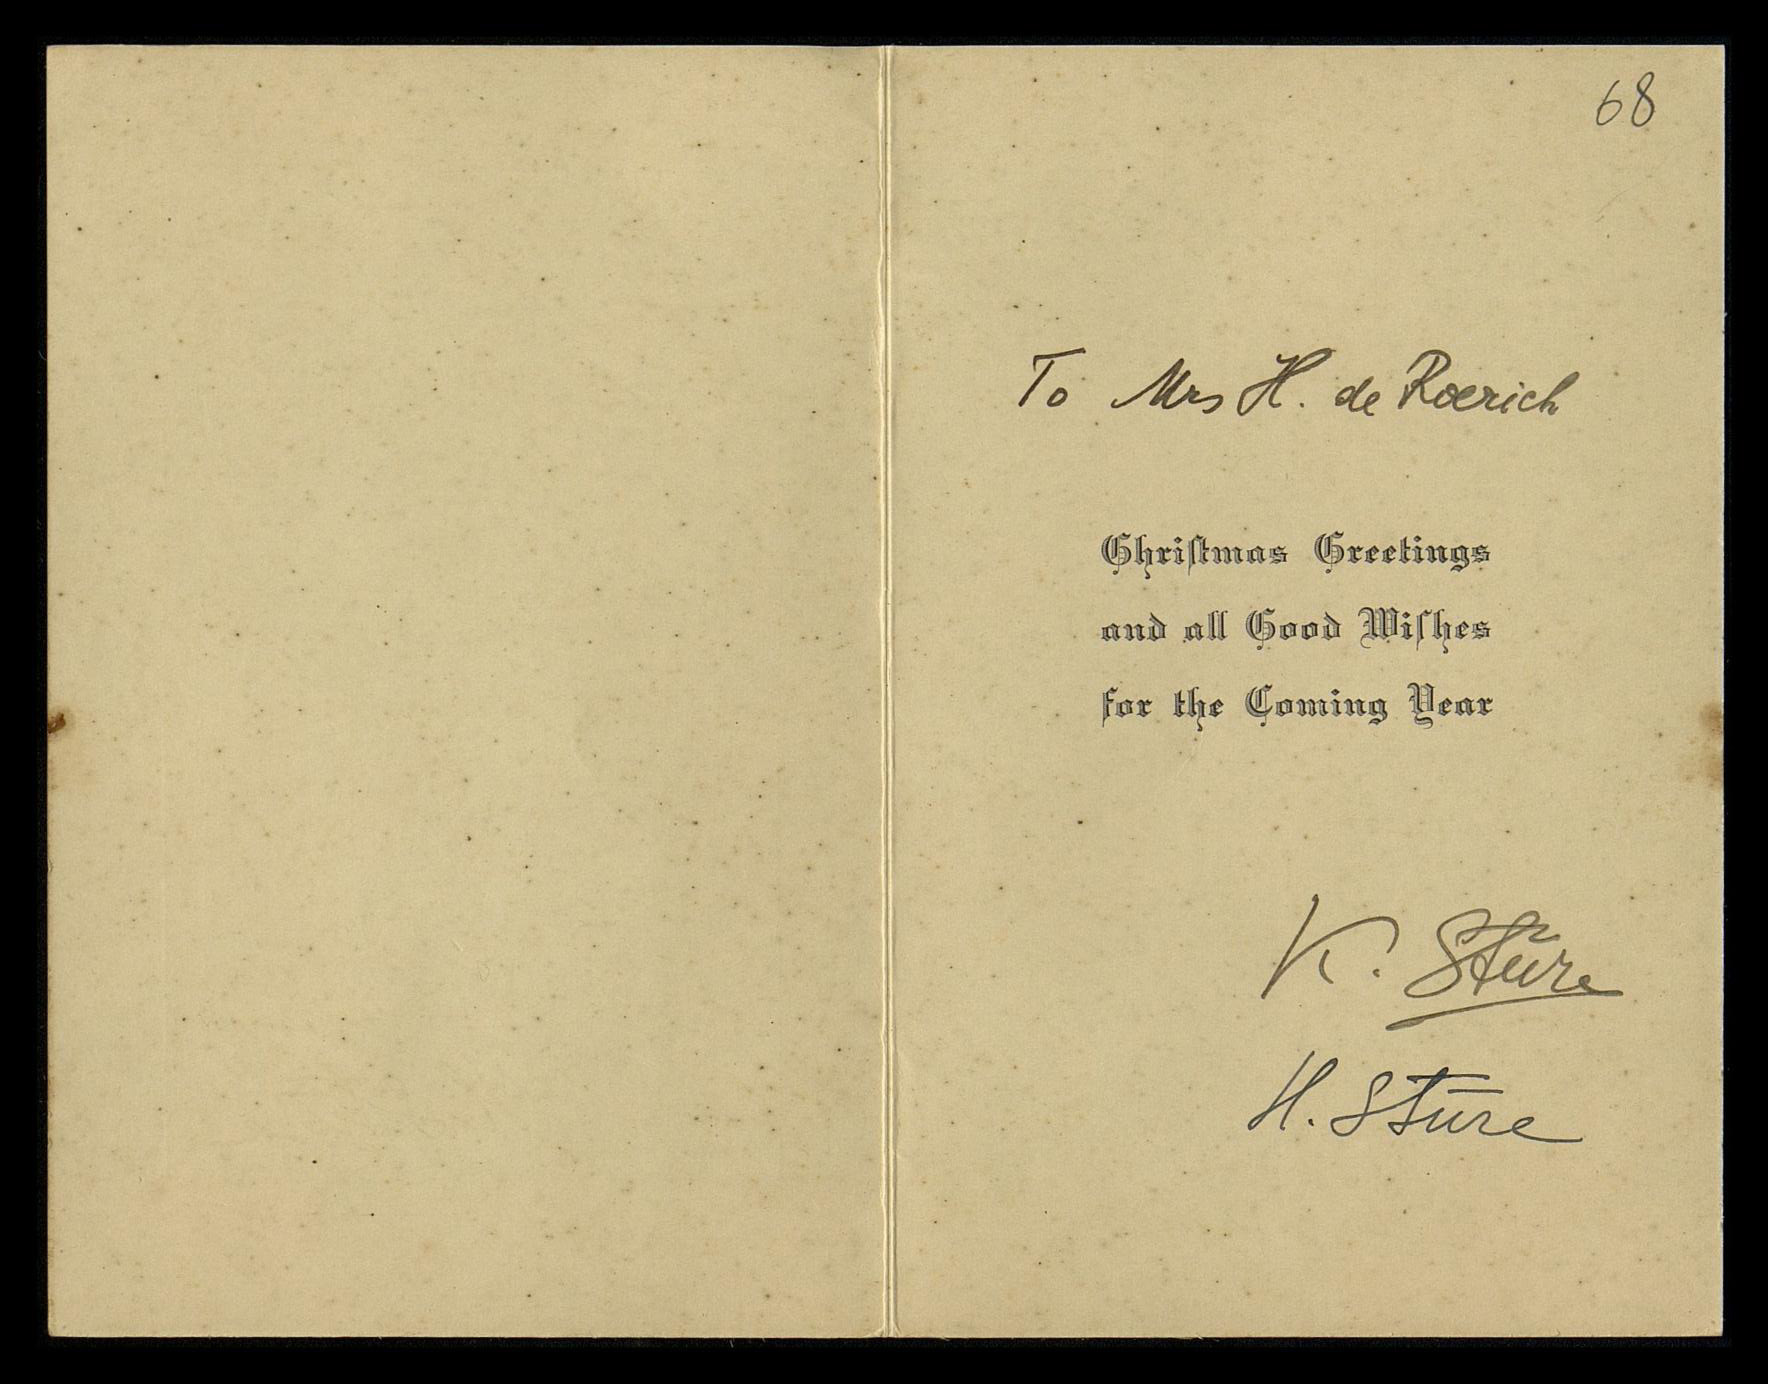 68
To Mrs H. de Roerich
Chriſtmas Greetings
and all Good Wiſhes
for the Coming Year
K. Stūre
H. Stūre